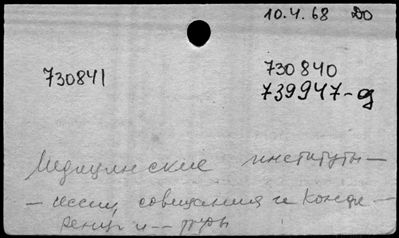 10.4.68 До
730841 730840
739947-д
Медицинские институты—
— совещания и конфе-
ренц и -- туры